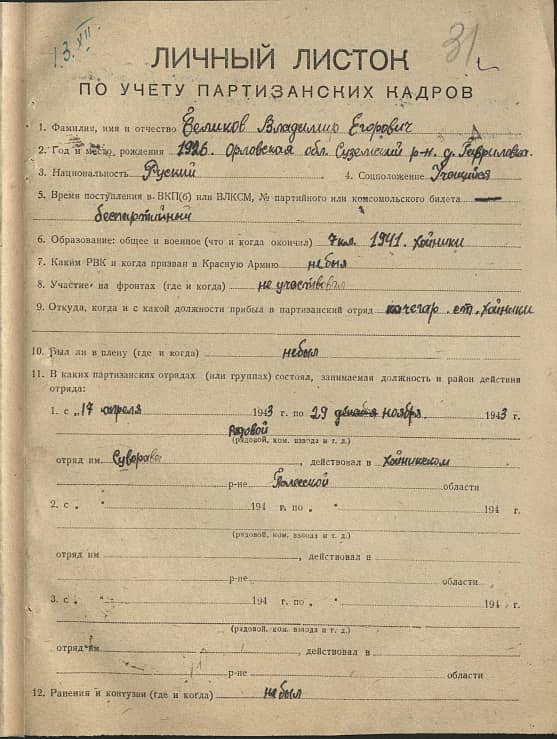 13. XII
31
ЛИЧНЫЙ ЛИСТОК
ПО УЧЕТУ ПАРТИЗАНСКИХ КАДРОВ
1. Фамилия, имя и отчество Великов Владимир Егорович
2. Год и место рождения 1926. Орловская обл. Суземский р-н. д. Гавриловка
3. Национальность Руский 4. Соцположение Учащийся
5. Время поступления в ВКП(б) или ВЛКСМ, № партийного или комсомольского билета —
беспартийный
6. Образование: общее и военное (что и когда окончил) 7 кл. 1941. Хойники
7. Каким РВК и когда призван в Красную Армию не был
8. Участие на фронтах (где и когда) не участвовал
9. Откуда, когда и с какой должности прибыл в партизанский отряд кочегар. ст. Хойники
10. Был ли в плену (где и когда) небыл
11. В каких партизанских отрядах (или группах) состоял, занимаемая должность и район действия
отряда:
1. с „17 апреля 1943 г. по 29 ноября 1943 г.
рядовой
(рядовой, ком. взвода и т. д.)
отряд им. Суворова, действовал в Хойникском
р-не Полесской области
2. с „ " 194 г. по „ " 194 г.
(рядовой, ком. взвода и т. д.)
отряд им , действовал в
р-не области
3. с „ " 194 г. по „ " 194 г.
(рядовой, ком. взвода и т. д.)
отряд им , действовал в
р-не области
12. Ранения и контузии (где и когда) небыл